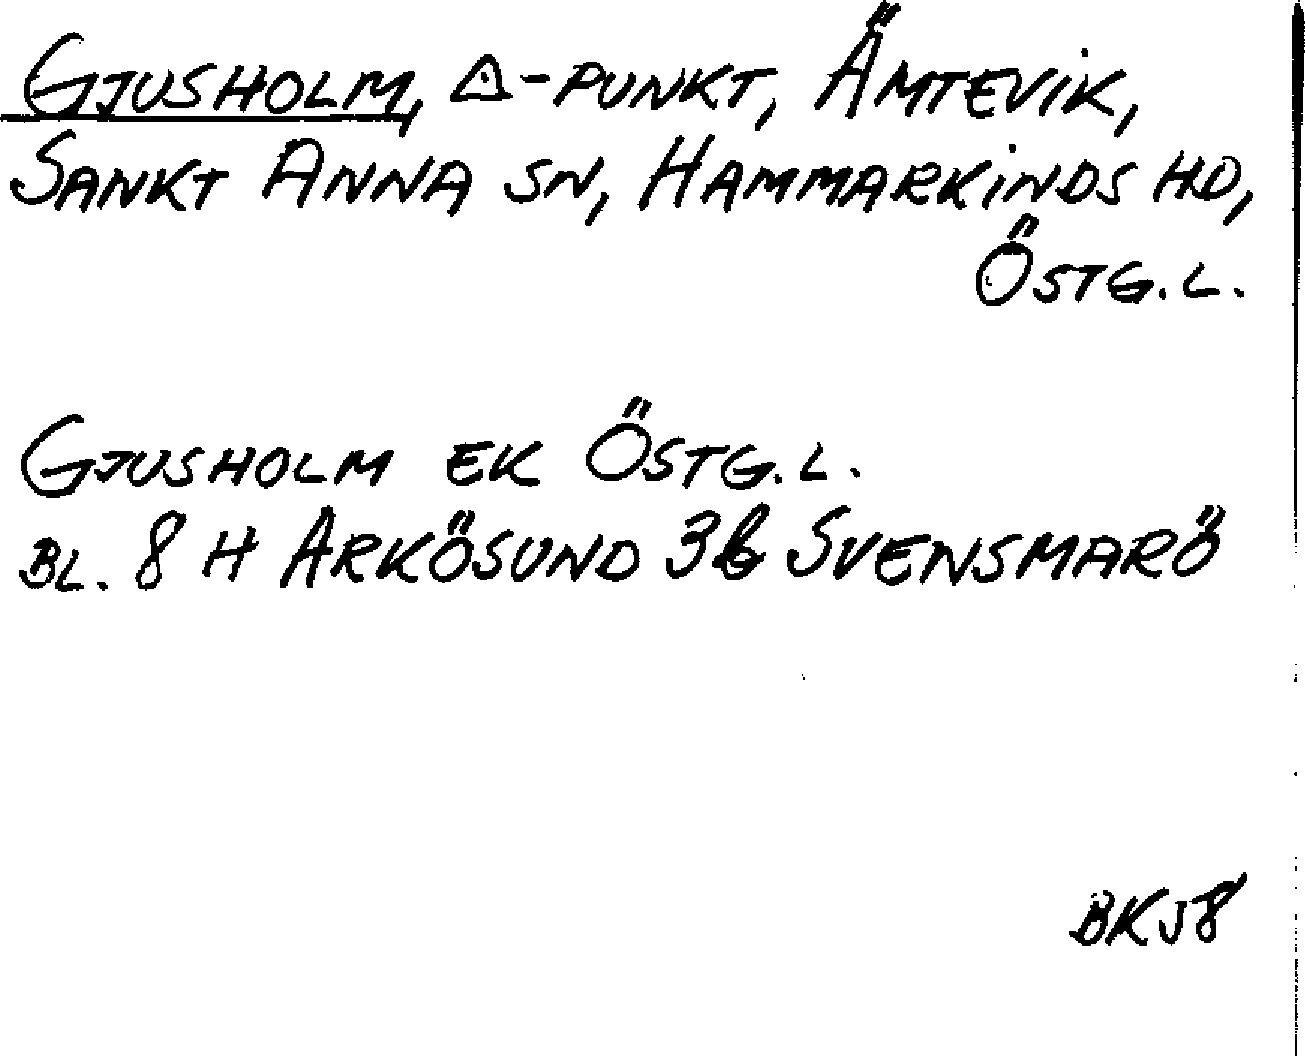 GJUSHOLM, △-PUNKT, ÄMTEVIK,
SANKT ANNA SN, HAMMARKINDS HD,
ÖSTG.L.
GJUSHOLM EK ÖSTG.L.
BL. 8 H ARKÖSUND 3b SVENSMARÖ
BKJ8